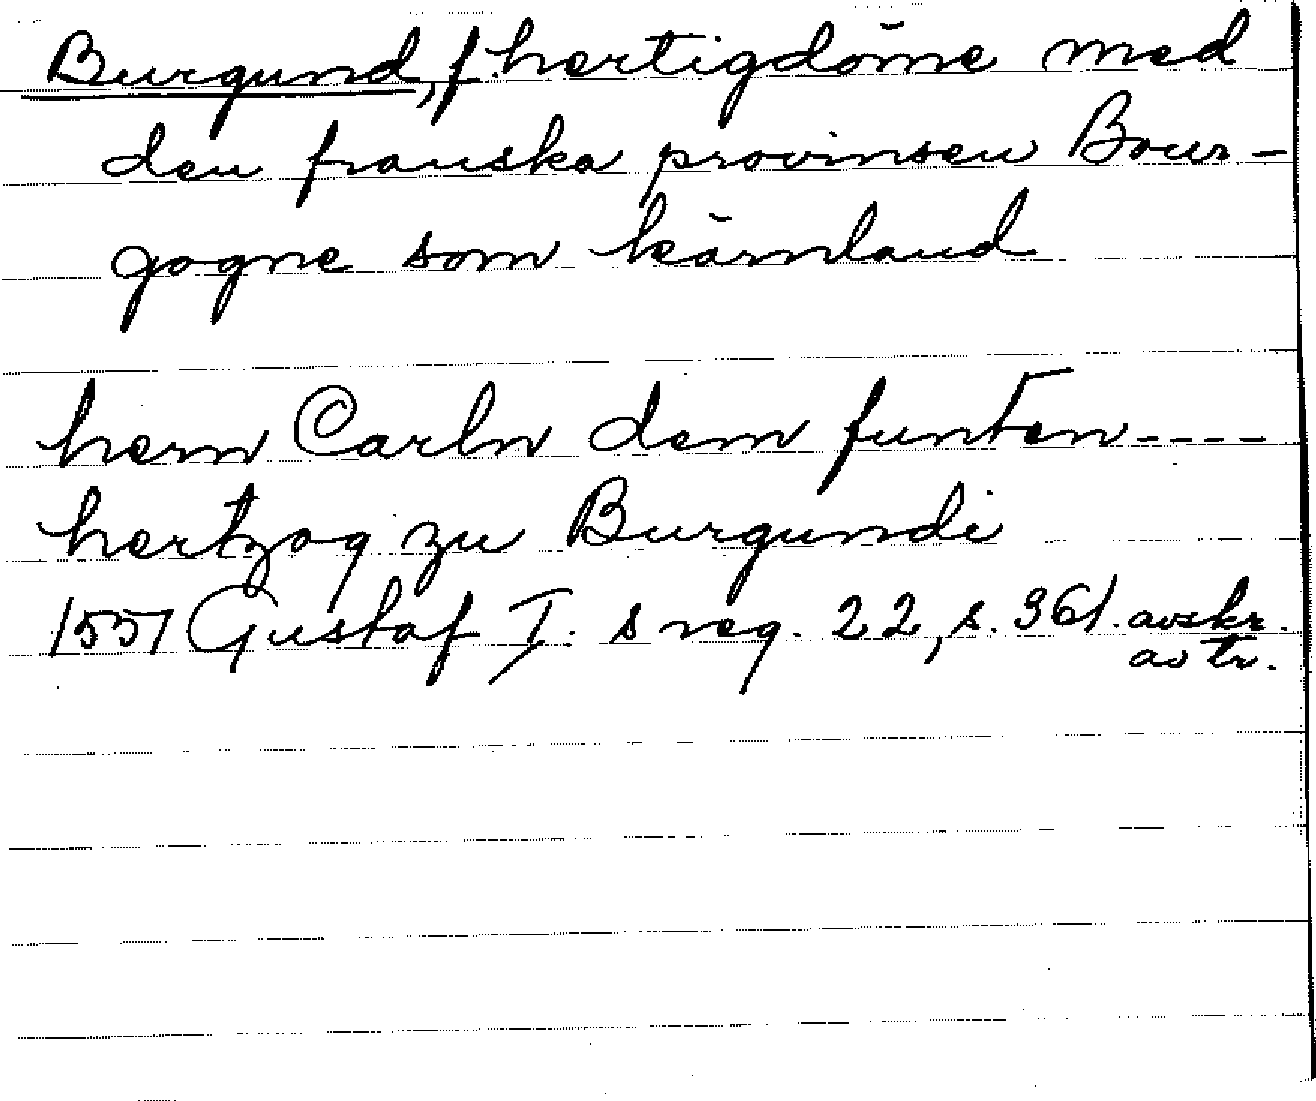 Burgund, f. hertigdöme med
den franska provinsen Bour-
gogne som kärnland
hern Carln dem funten----
hertzog zu Burgundi
1551 Gustaf I:s reg. 22, s. 361. avskr.
av tr.